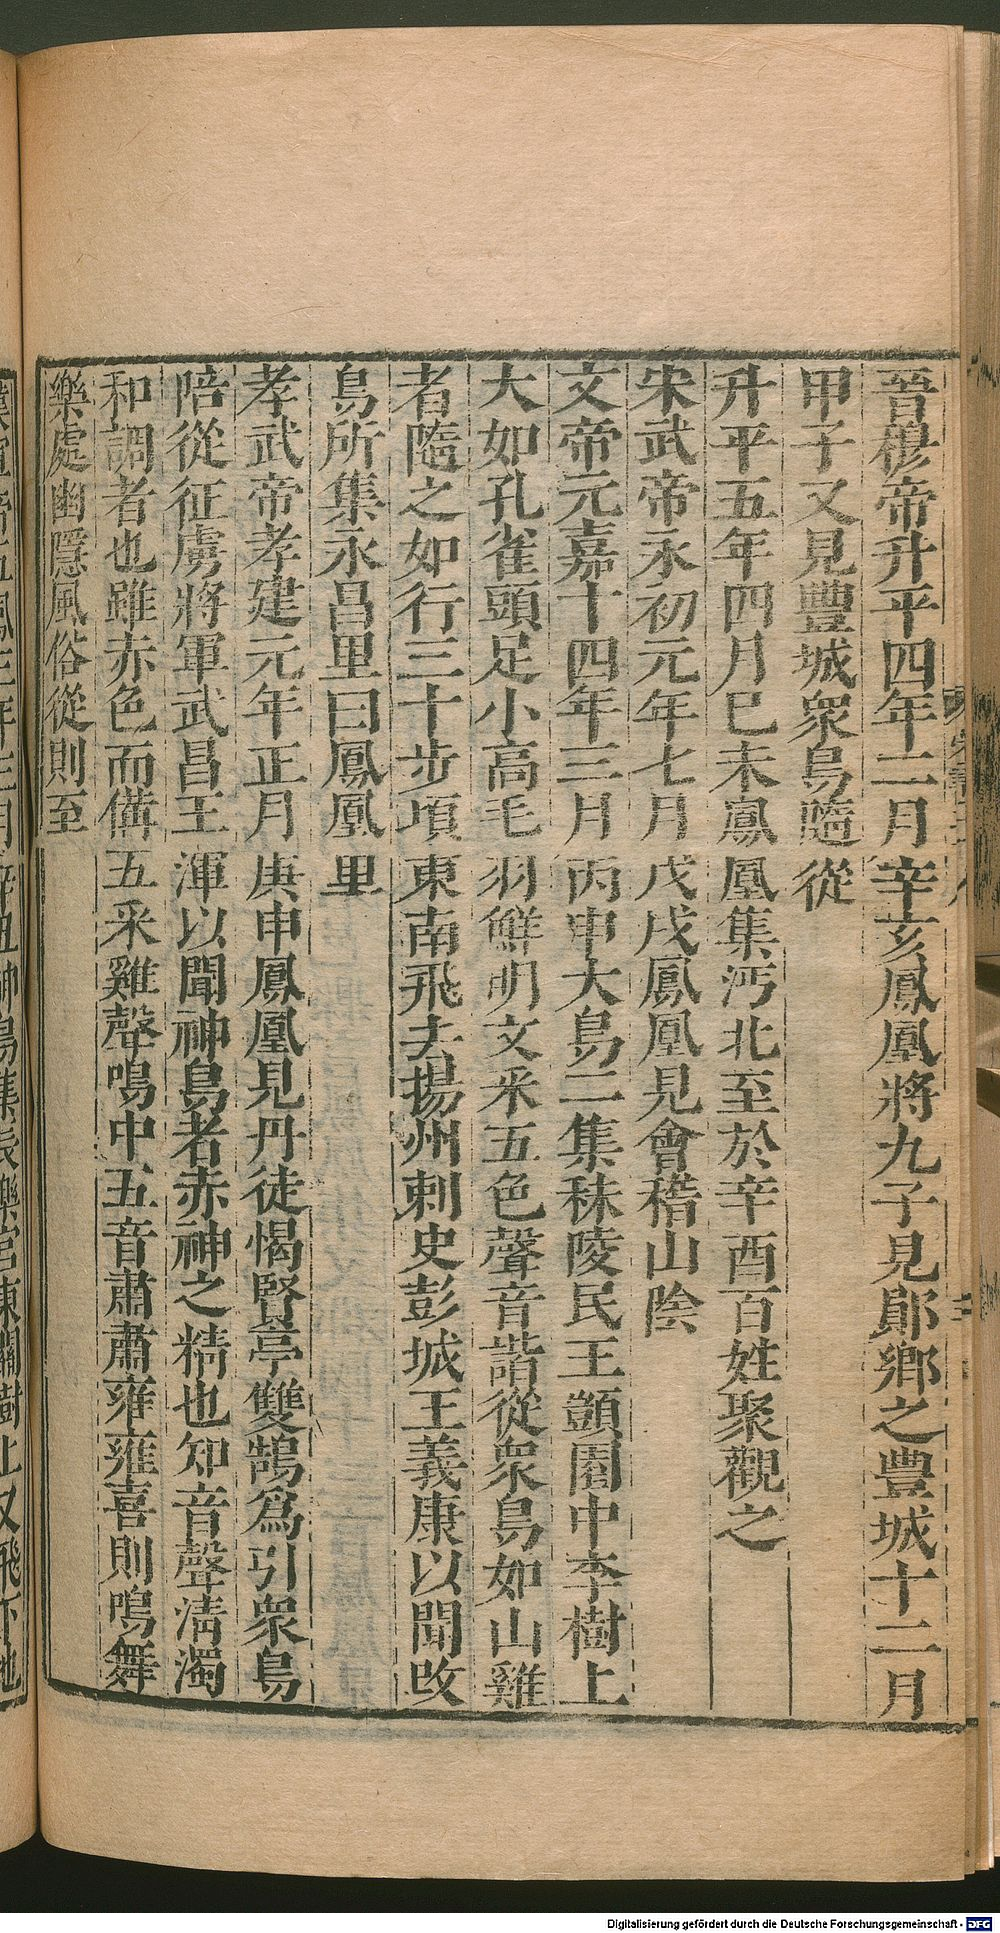 晉穆帝升平四年二月辛亥鳳凰將九子見鄖鄉之豐城十二月
甲子又見豐城衆鳥隨從
升平五年四月巳未鳳凰集沔北至於辛酉百姓聚觀之
宋武帝永初元年七月戊戌鳳凰見會稽山陰
文帝元嘉十四年三月丙申大鳥二集秣陵民王顗園中李樹上
大如孔雀頭足小高毛羽鮮明文采五色聲音諧從衆鳥如山雞
者隨之如行三十步頃東南飛去揚州刺史彭城王義康以聞改
鳥所集永昌里曰鳳凰里
孝武帝孝建元年正月庚申鳳凰見丹徒愒賢亭雙鵠爲引衆鳥
陪從征虜將軍武昌王渾以聞神鳥者赤神之精也知音聲淸濁
和調者也雖赤色而備五采雞聲鳴中五音肅肅雍雍喜則鳴舞
樂處幽隱風俗從則至
Digitalisierung gefördert durch die Deutsche Forschungsgemeinschaft - DFG